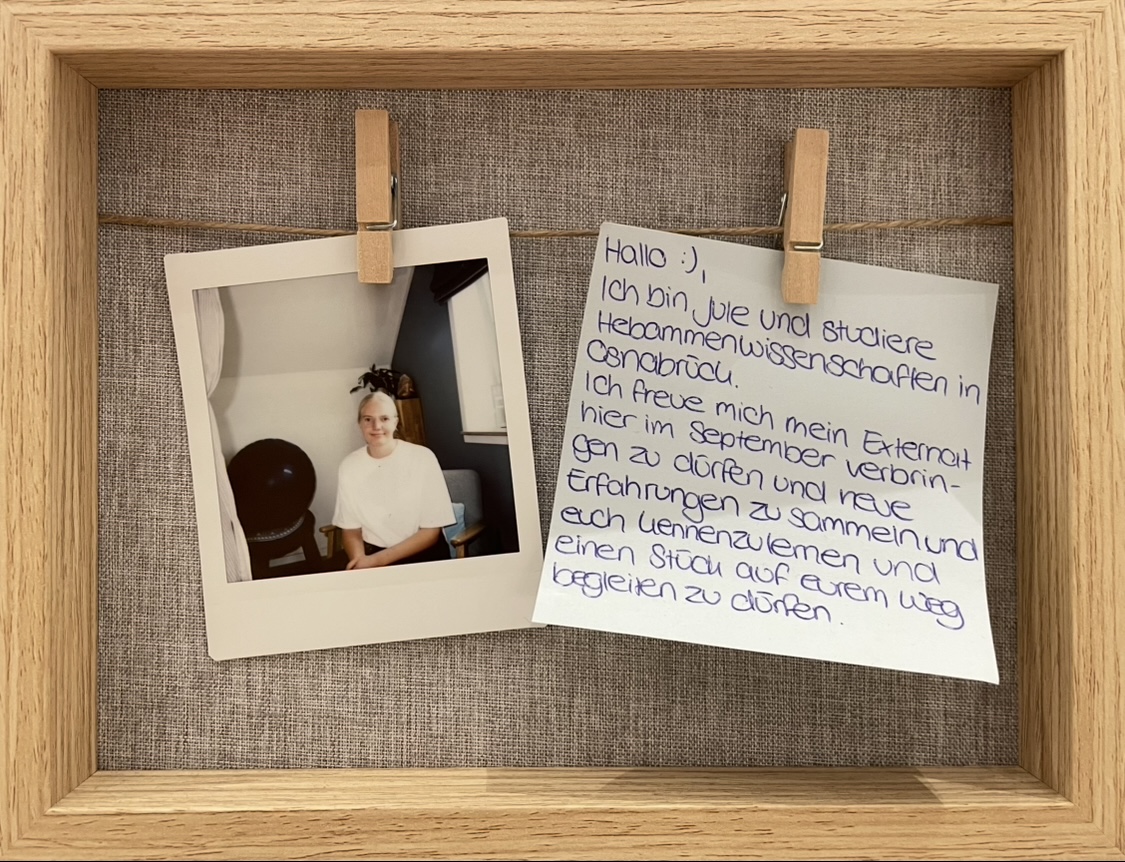 Hallo :),
Ich bin Jule und studiere
Hebammenwissenschaften in
Osnabrück.
Ich freue mich mein Externat
hier im September verbrin-
gen zu dürfen und neue
Erfahrungen zu sammeln und
euch kennenzulernen und
einen Stück auf eurem Weg
begleiten zu dürfen.